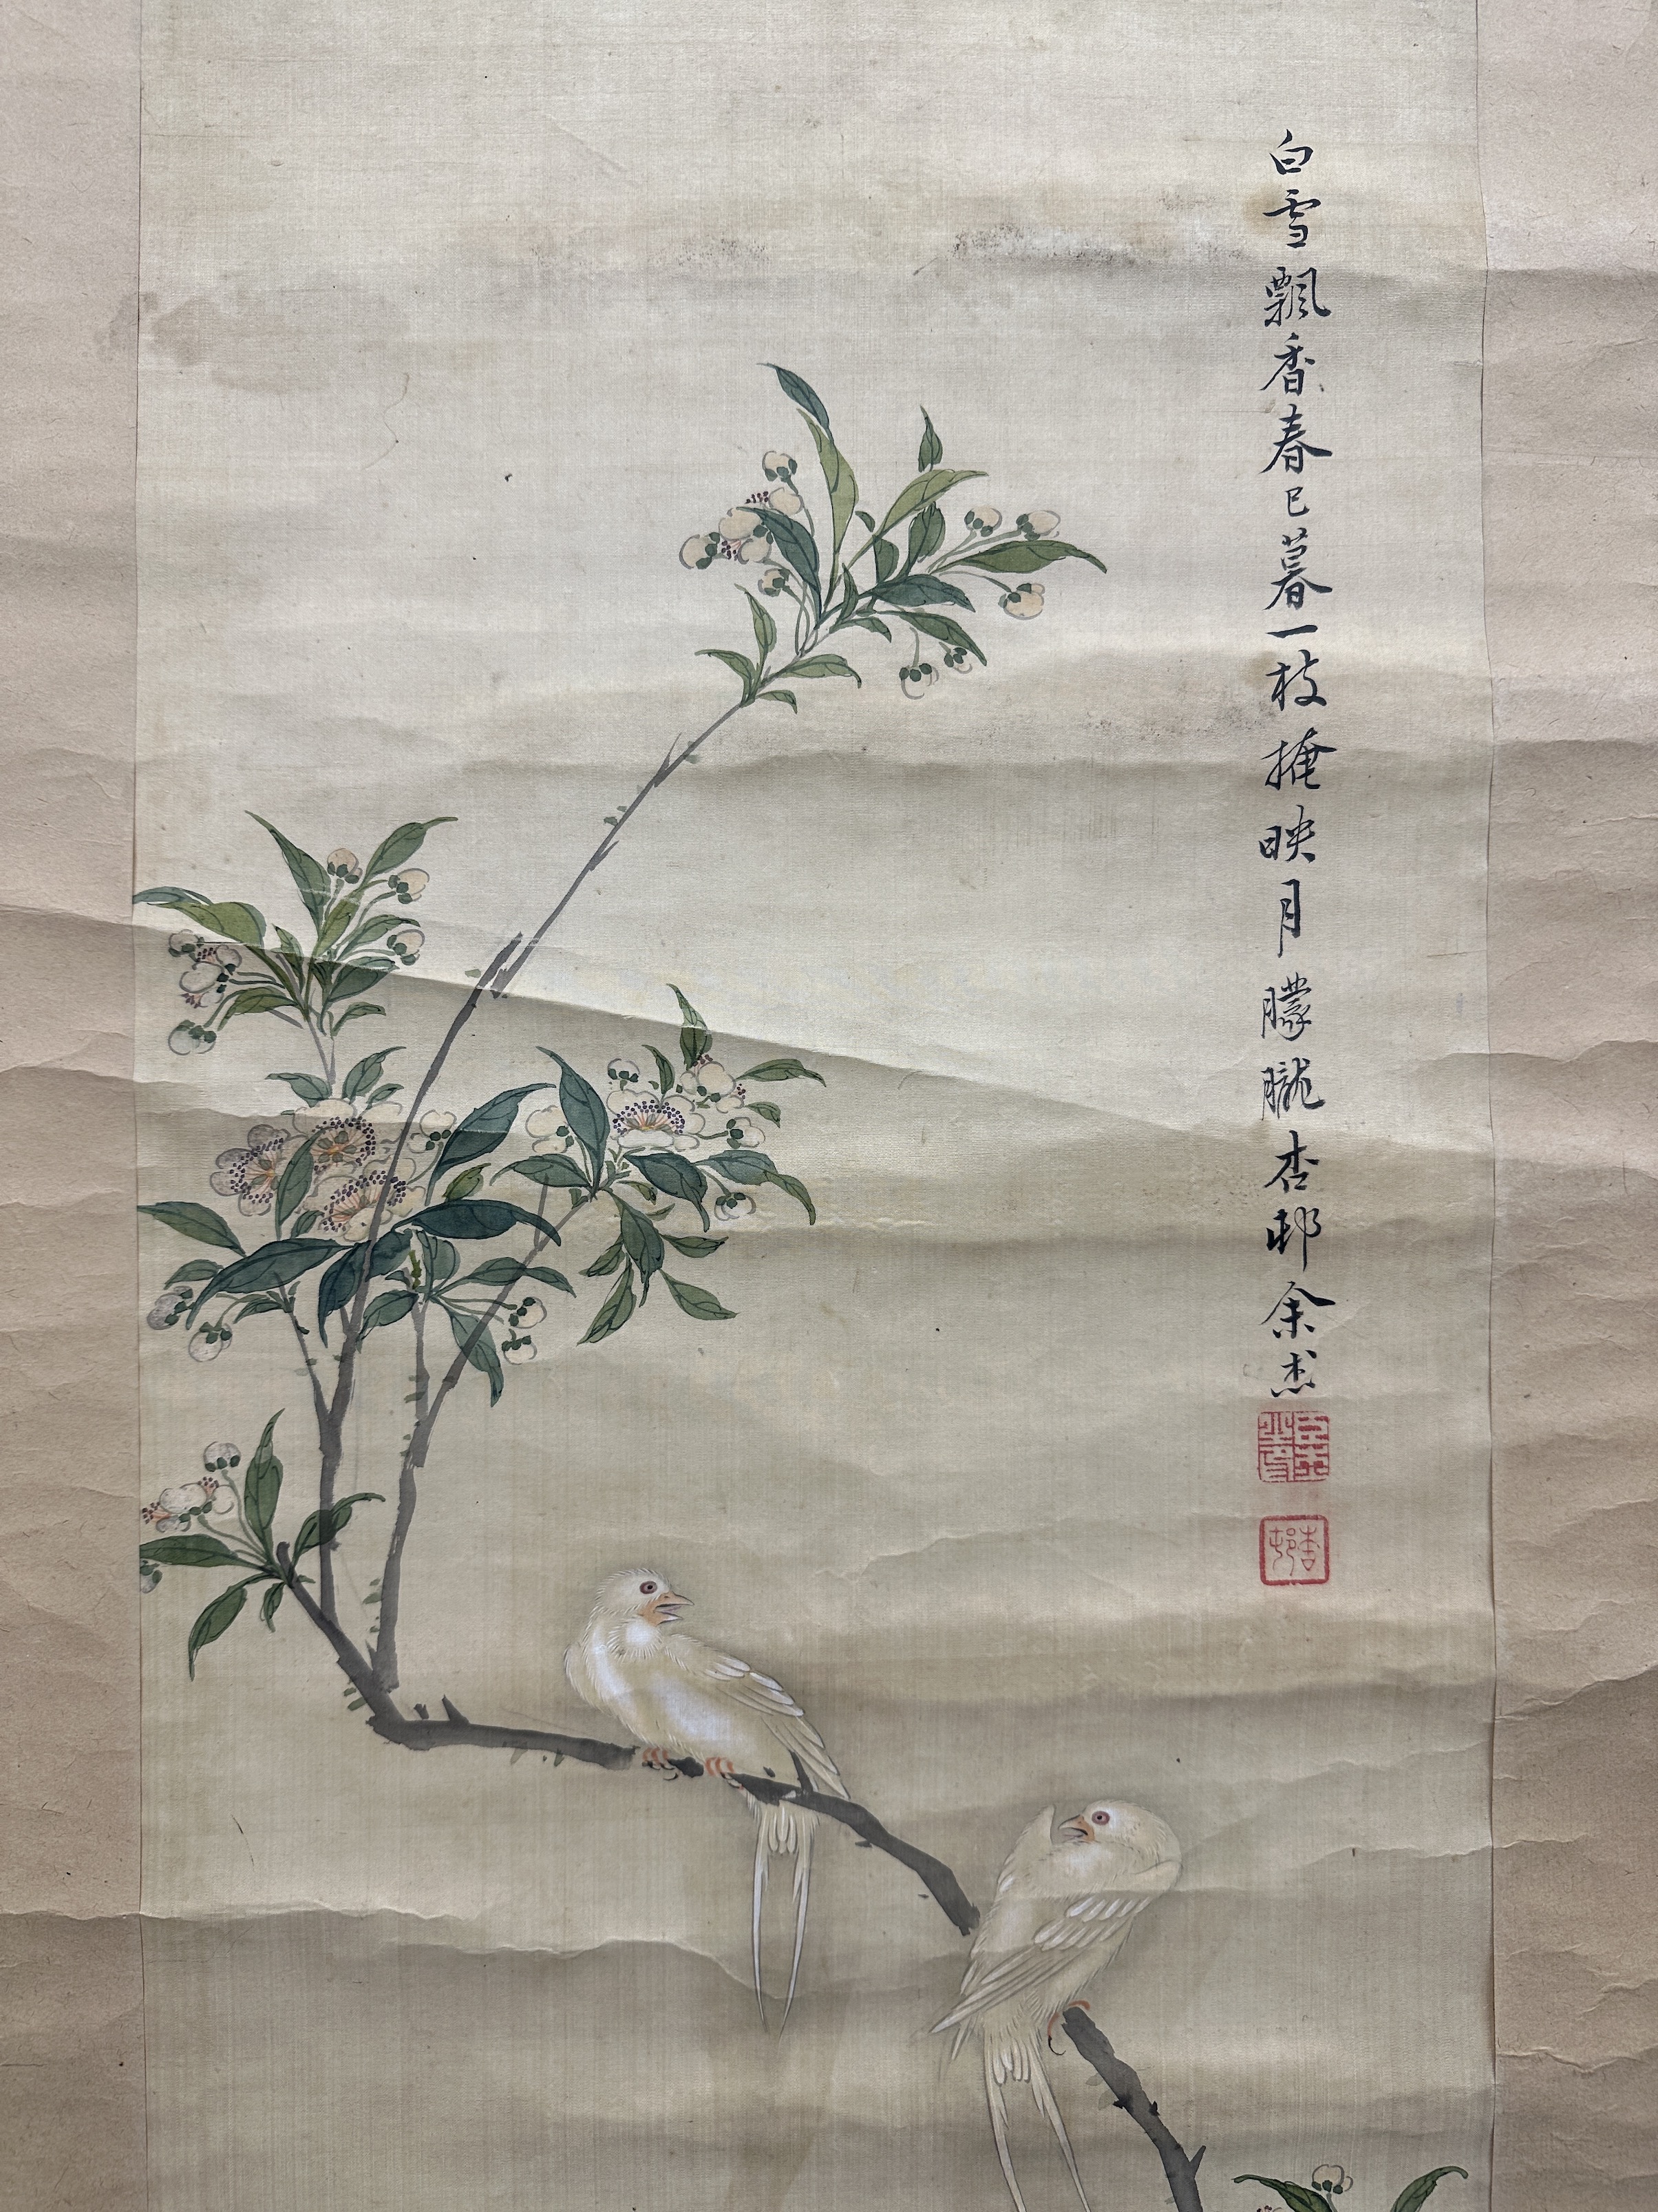 白雪飄香春已暮一枝掩映月朦朧杏邨余杰
杏邨